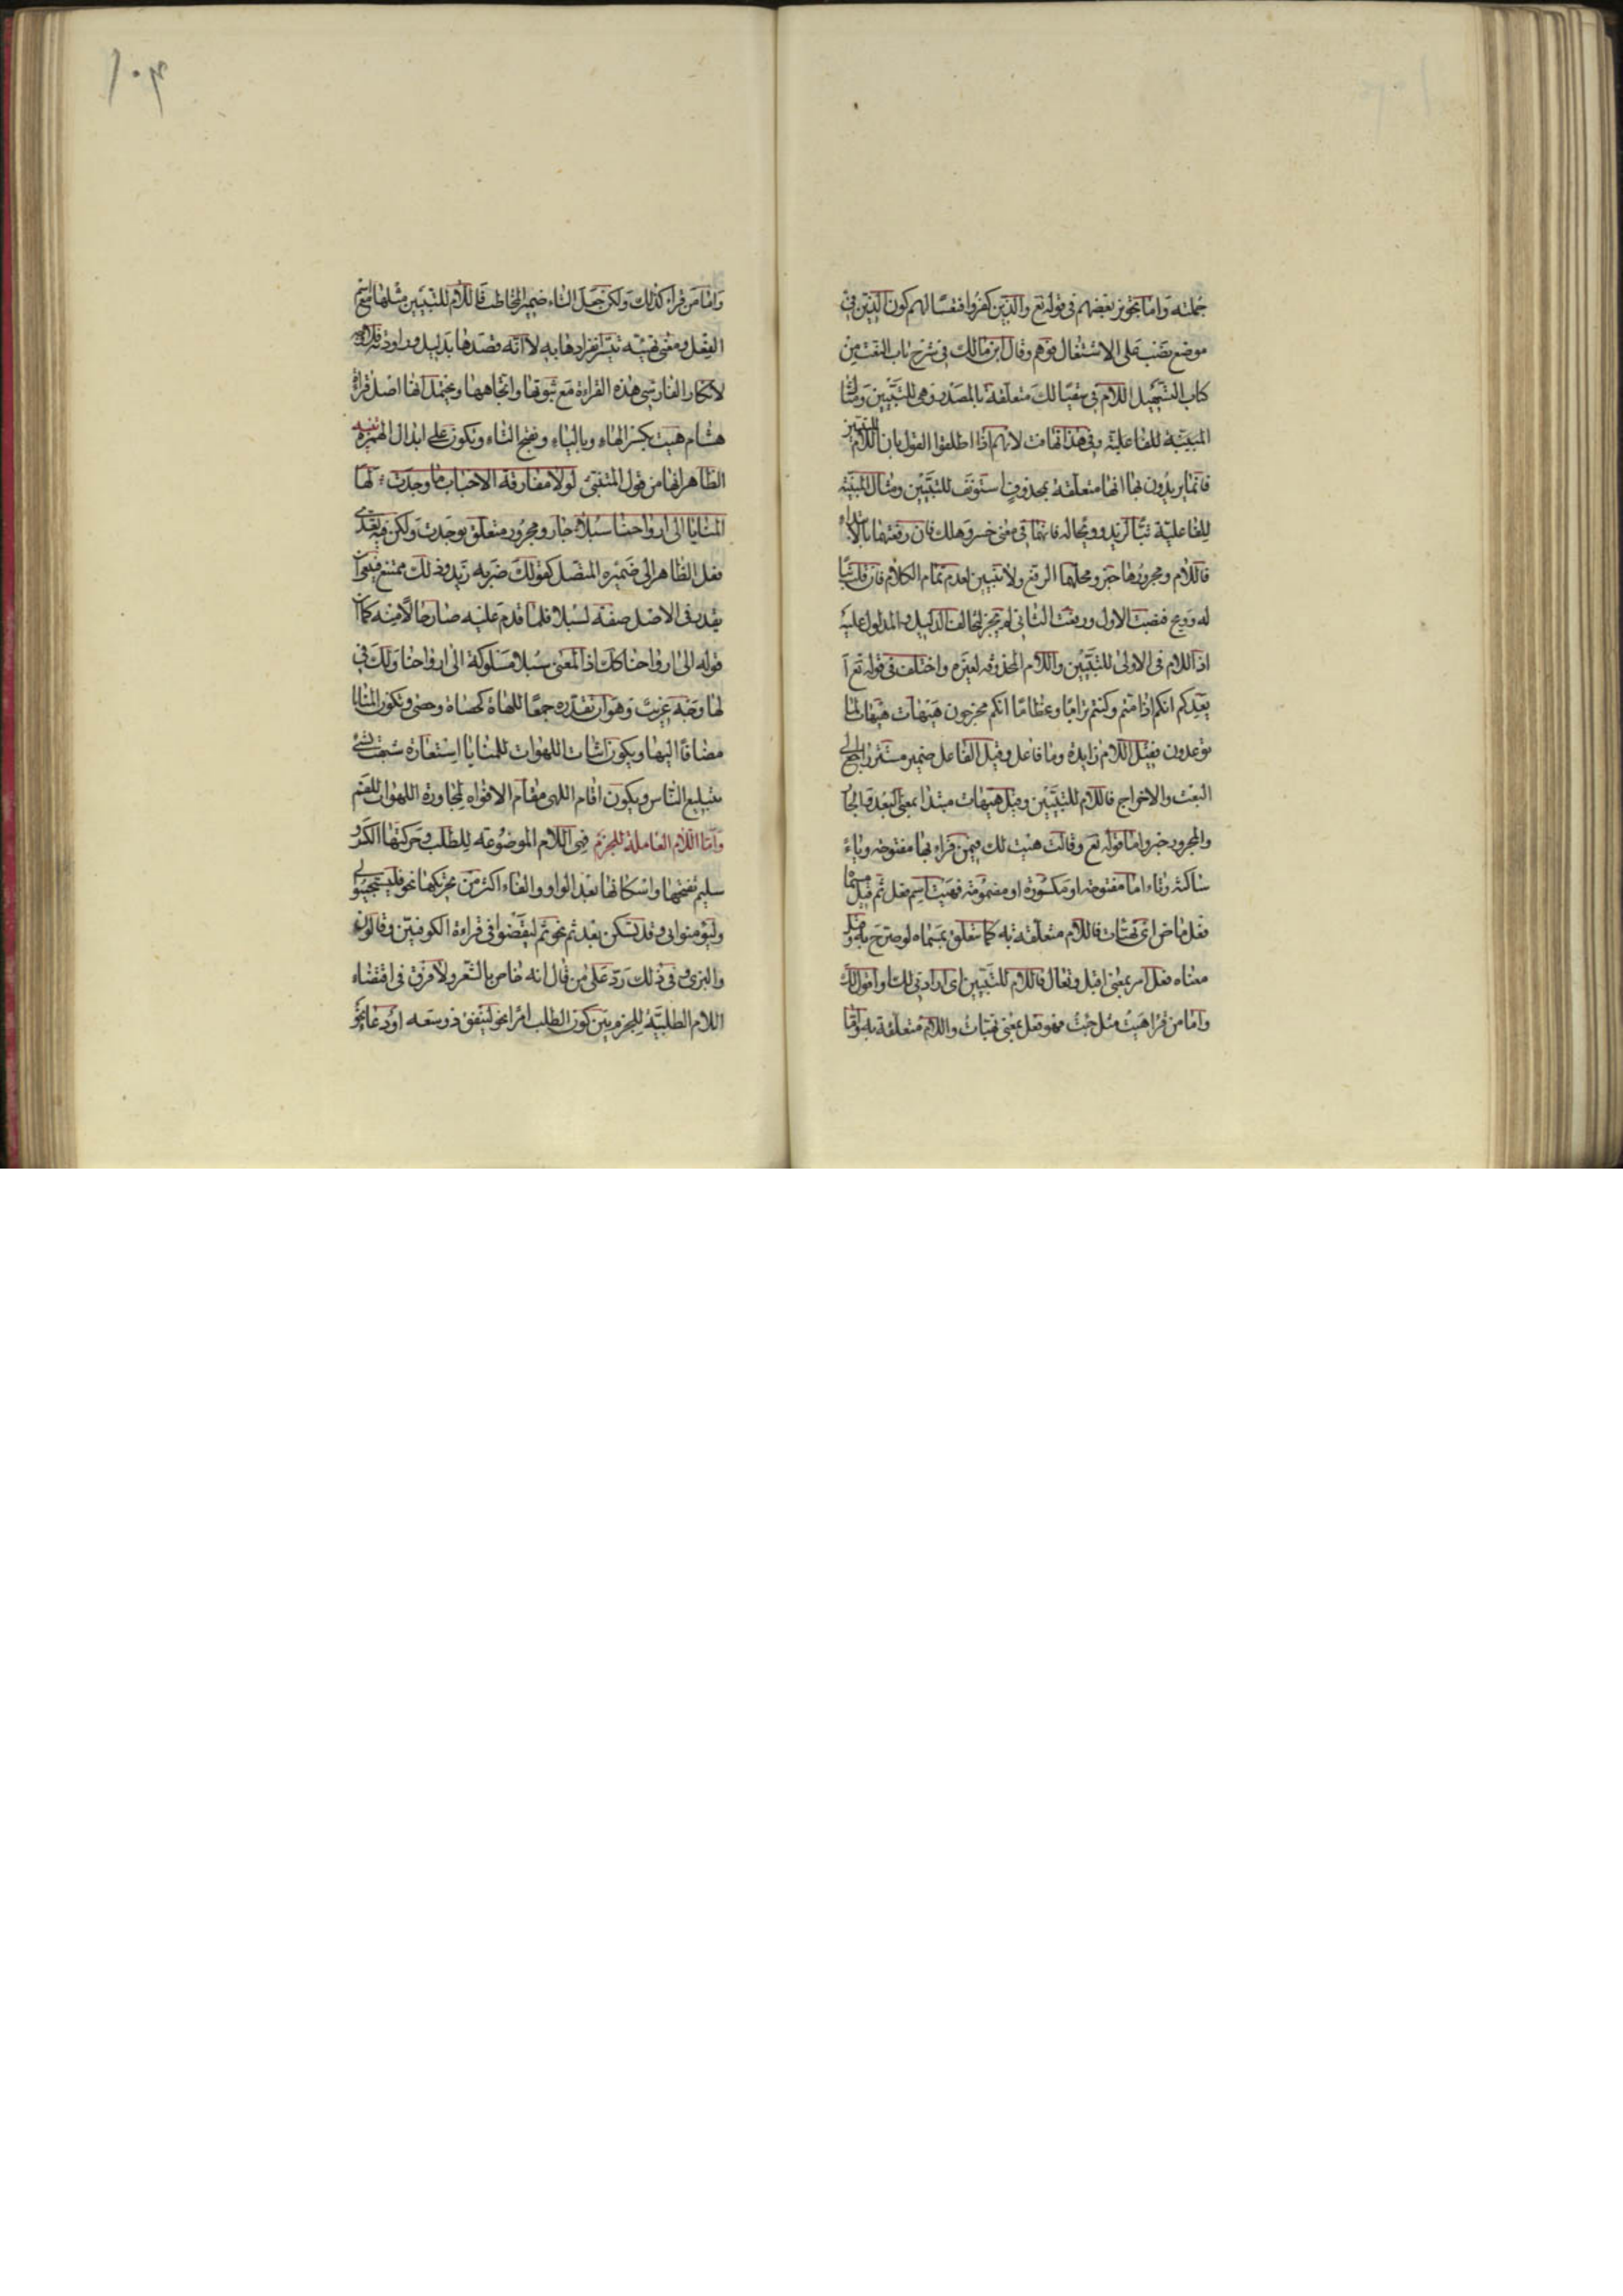 جملته واما تجويز بعضهم فى قوله تع والذين كفروا فتعسا لهم كون الذين فى
موضع نصب على الاشتغال فوهم وقال ابن مالك فى شرح باب النعت من
كتاب التسهيل اللام فى سقيا لك متعلقة بالمصدر وهى للتبيين ومثال
المبينة للفاعلية وفى هذا تهافت لانهم اذا اطلقوا القول بان اللام للتبيين
فانما يريدون بها انها متعلقة بمحذوف استونف للتبيين ومثال المبينة
للفاعلية تبا لزيد وويحا له فانهما فى معنى خسر وهلك فان رفعتهما بالابتداء
فاللام ومجرورها خبر ومحلها الرفع ولا تبيين لعدم تمام الكلام فان قلت تبا
له وويح فنصبت الاول ورفعت الثانى لم يجز لتخالف الدليل والمدلول عليه
اذ اللام فى الاولى للتبيين واللام المحذوفه لغيره واختلف فى قوله تع ا
يعدكم انكم اذا متم وكنتم ترابا وعظاما انكم مخرجون هيهات هيهات لما
توعدون فقيل اللام زايدة وما فاعل وقيل الفاعل ضمير مستتر راجع الى
البعث والاخراج فاللام للتبيين وقيل هيهات مبتدا بمعنى البعد والجار
والمجرور خبر واما قوله تع وقالت هيت لك فيمن قراء بها مفتوحه وياء
ساكنة وتاء اما مفتوحه او مكسورة او مضمومة فهيت اسم فعل ثم قيل مسماه
فعل ماض اى تهيات فاللام متعلقة به كما تتعلق بمسماه لو صرح به وقيل
معناه فعل امر بمعنى اقبل وتعال فاللام للتبيين اى ارادتى لك او اقول لك
واما من قرا هيت مثل جئت فهو فعل بمعنى تهيات واللام متعلقة به واما
واما من قراء كذلك ولكن جعل التاء ضمير المخاطب فاللام للتبيين مثلها مع اسم
الفعل ومعنى تهيئه تيسر انفرادها به لا انه قصدها بدليل وراودته فلا وجه
لانكار الفارسى هذه القراءة مع ثبوتها واتجاهها ويحتمل انها اصل قراءة
هشام هيت بكسر الهاء وبالياء وبفتح التاء وتكون على ابدال الهمزه تنبيه
الظاهر انها من قول المتنبى لولا مفارقة الاحباب ما وجدت لها
المنايا الى ارواحنا سبلا جار ومجرور متعلق بوجدت ولكن فيه تعدى
فعل الظاهر الى ضميره المتصل كقولك ضربه زيد وذلك ممتنع فينبغى ان
يقدر فى الاصل صفة لسبلا فلما قدم عليه صار حالا منه كما ان
قوله الى ارواحنا كذلك اذ المعنى سبلا مسلوكة الى ارواحنا ولك فى
لها وجه غريب وهو ان تقدره جمعا للهاة كحصاة وحصى وتكون المنايا
مضافا اليها ويكون اثبات اللهوات للمنايا استعارة شبهت بشئ
يبتلع الناس ويكون اقام اللهى مقام الافواه لمجاورة اللهوات للفم
واما اللام العاملة للجزم فهى اللام الموضوعه للطلب وحركتها الكسر و
سليم تفتحها واسكانها بعد الواو والفاء اكثر من تحريكها نحو فليستجيبوا لى
وليؤمنوا بى وقد تسكن بعد ثم نحو ثم ليقضوا فى قراءة الكوفيين وقالون
والبزى وفى ذلك رد على من قال انه خاص بالشعر ولا فرق فى اقتضاء
اللام الطلبية للجزم بين كون الطلب امرا نحو لينفق ذو سعه او دعا نحو